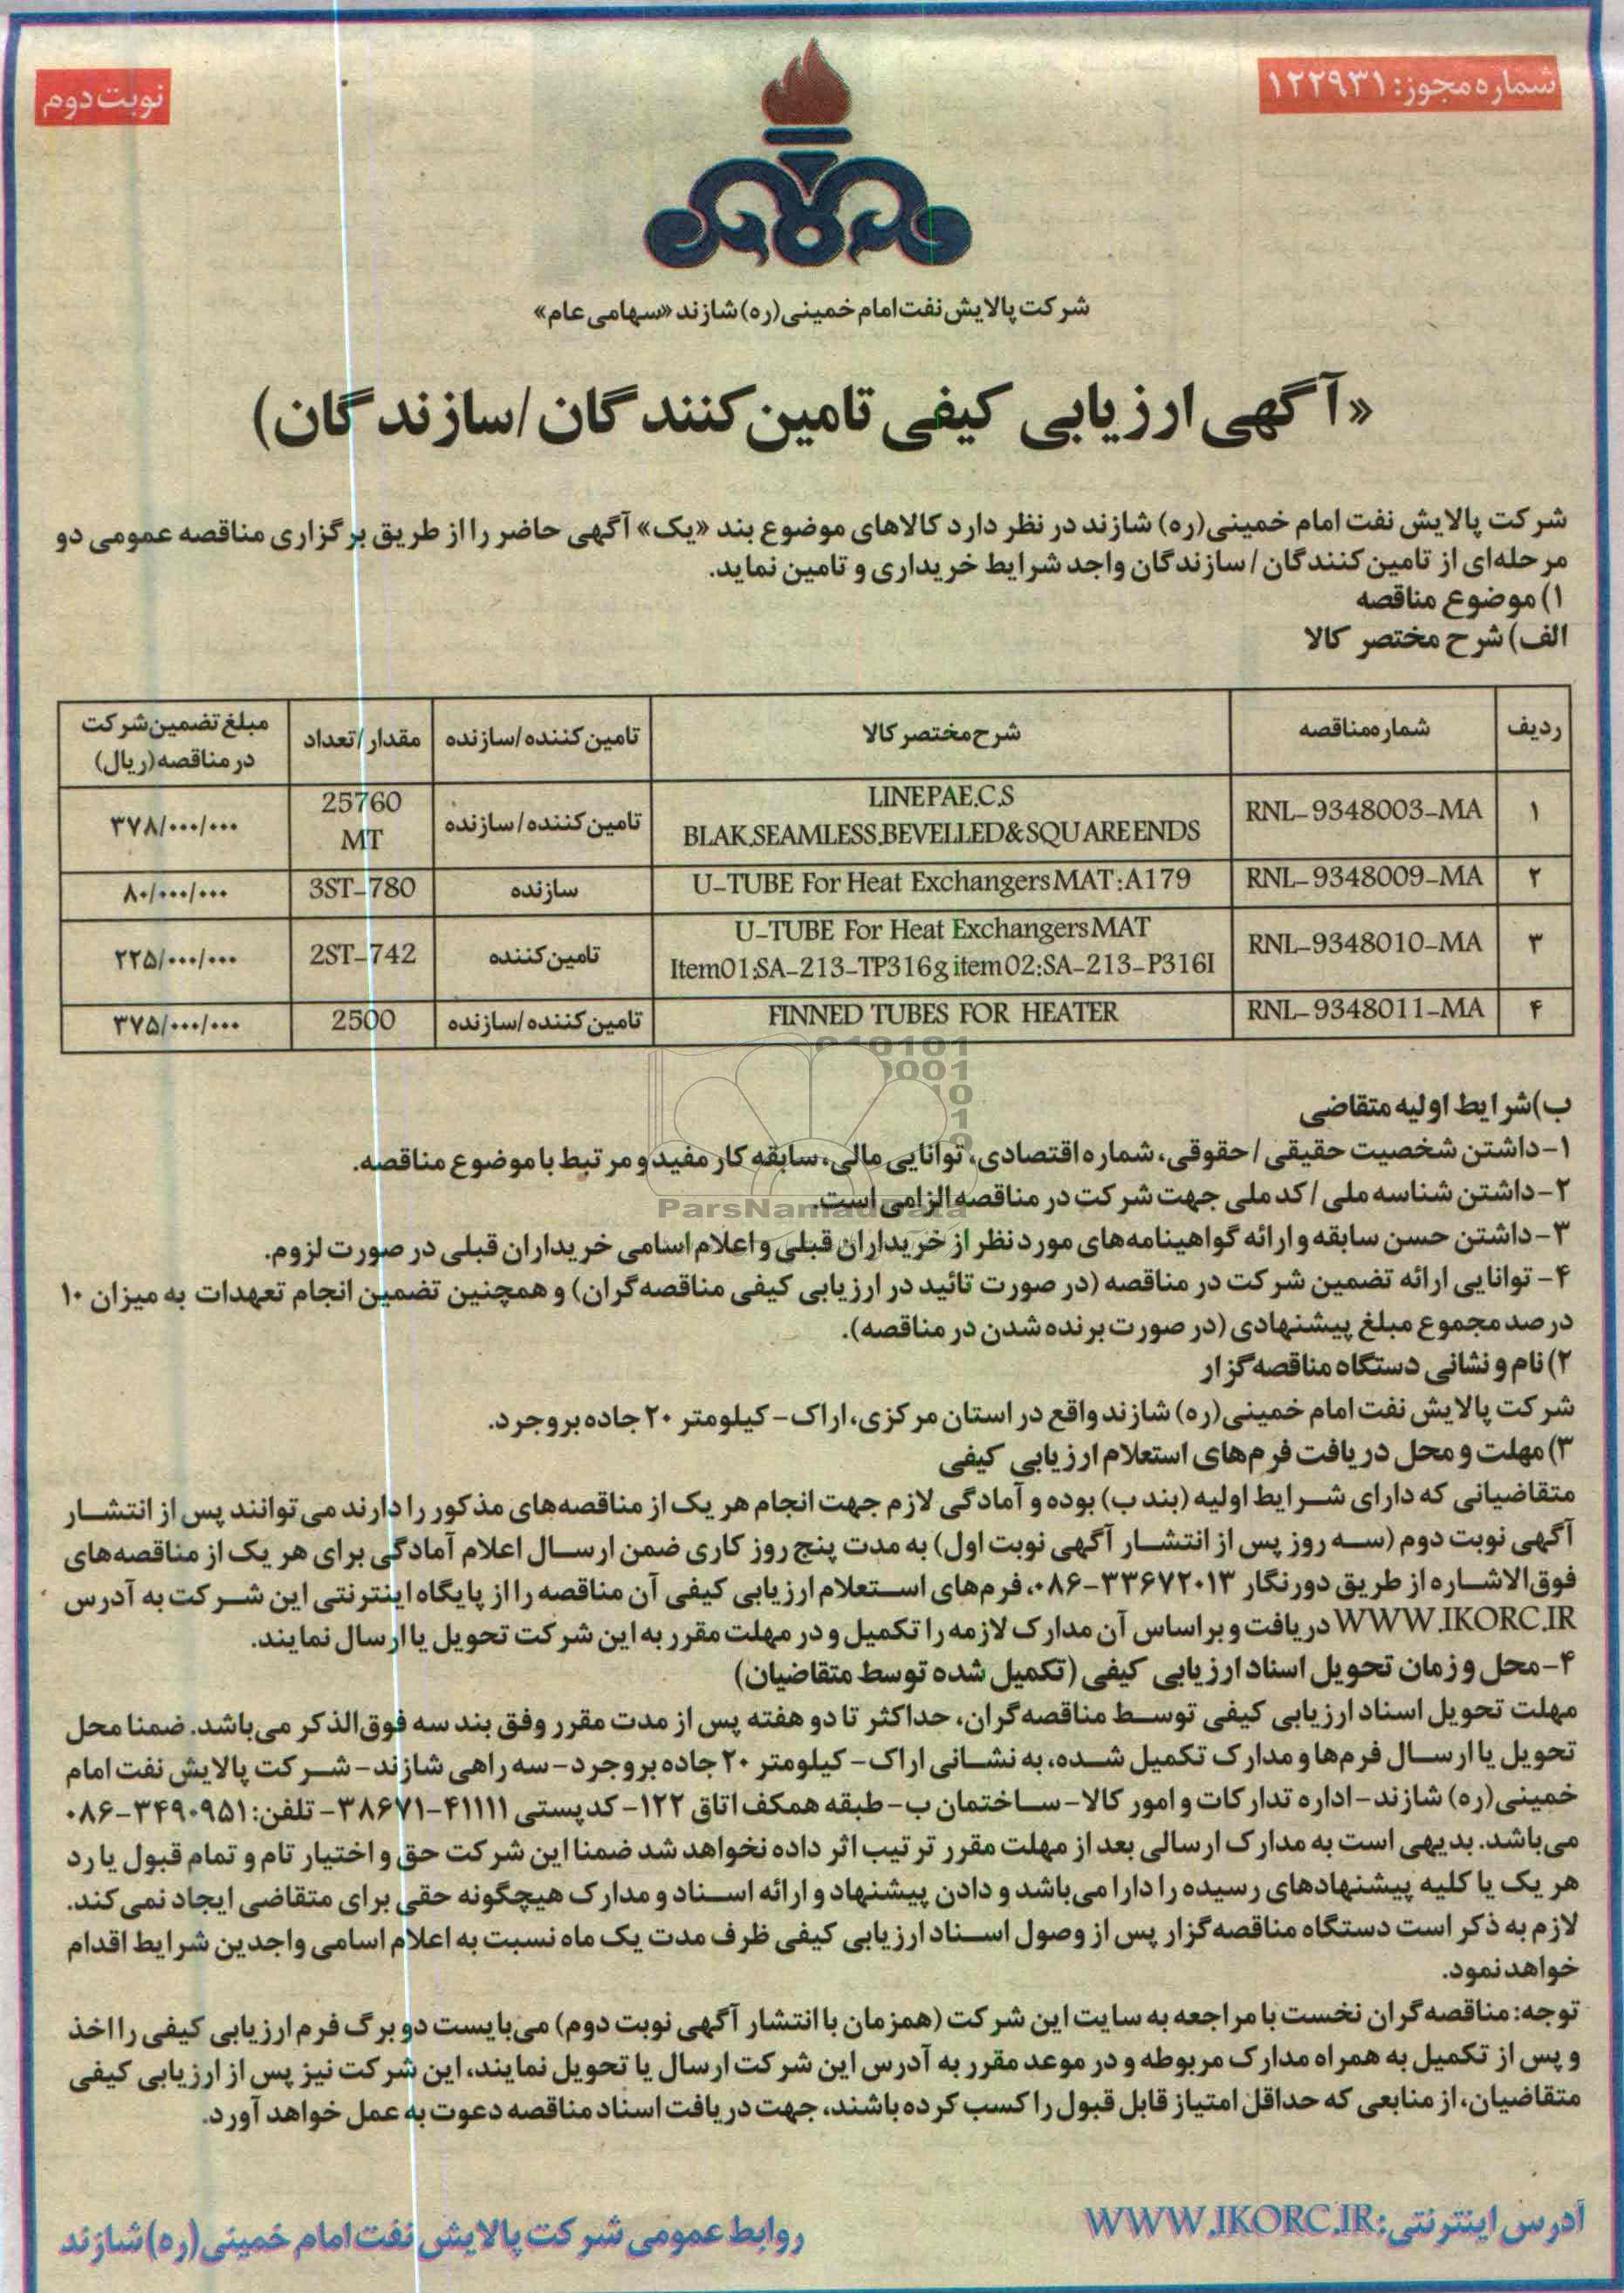 شماره مجوز: ۱۲۲۹۳۱
نوبت دوم
شرکت پالایش نفت امام خمینی(ره) شازند «سهامی عام»
«آگهی ارزیابی کیفی تامین کنندگان/سازندگان)
شرکت پالایش نفت امام خمینی(ره) شازند در نظر دارد کالاهای موضوع بند «یک» آگهی حاضر را از طریق برگزاری مناقصه عمومی دو
مرحله‌ای از تامین کنندگان / سازندگان واجد شرایط خریداری و تامین نماید.
۱) موضوع مناقصه
الف) شرح مختصر کالا
ردیف | شماره مناقصه | شرح مختصر کالا | تامین کننده/سازنده | مقدار/تعداد | مبلغ تضمین شرکت در مناقصه(ریال)
۱ | RNL-9348003-MA | LINEPAE.C.S BLAK.SEAMLESS.BEVELLED&SQUAREENDS | تامین کننده/سازنده | 25760 MT | ۳۷۸/۰۰۰/۰۰۰
۲ | RNL-9348009-MA | U-TUBE For Heat ExchangersMAT:A179 | سازنده | 3ST-780 | ۸۰/۰۰۰/۰۰۰
۳ | RNL-9348010-MA | U-TUBE For Heat ExchangersMAT Item01:SA-213-TP316g item02:SA-213-P316I | تامین کننده | 2ST-742 | ۲۲۵/۰۰۰/۰۰۰
۴ | RNL-9348011-MA | FINNED TUBES FOR HEATER | تامین کننده/سازنده | 2500 | ۳۷۵/۰۰۰/۰۰۰
ب) شرایط اولیه متقاضی
۱- داشتن شخصیت حقیقی / حقوقی، شماره اقتصادی، توانایی مالی، سابقه کار مفید و مرتبط با موضوع مناقصه.
۲- داشتن شناسه ملی / کد ملی جهت شرکت در مناقصه الزامی است.
ParsNamadData
۳- داشتن حسن سابقه و ارائه گواهینامه‌های مورد نظر از خریداران قبلی و اعلام اسامی خریداران قبلی در صورت لزوم.
۴- توانایی ارائه تضمین شرکت در مناقصه (در صورت تائید در ارزیابی کیفی مناقصه‌گران) و همچنین تضمین انجام تعهدات به میزان ۱۰
درصد مجموع مبلغ پیشنهادی (در صورت برنده شدن در مناقصه).
۲) نام و نشانی دستگاه مناقصه‌گزار
شرکت پالایش نفت امام خمینی(ره) شازند واقع در استان مرکزی، اراک- کیلومتر ۲۰ جاده بروجرد.
۳) مهلت و محل دریافت فرم‌های استعلام ارزیابی کیفی
متقاضیانی که دارای شرایط اولیه (بند ب) بوده و آمادگی لازم جهت انجام هر یک از مناقصه‌های مذکور را دارند می‌توانند پس از انتشار
آگهی نوبت دوم (سه روز پس از انتشار آگهی نوبت اول) به مدت پنج روز کاری ضمن ارسال اعلام آمادگی برای هر یک از مناقصه‌های
فوق‌الاشاره از طریق دورنگار ۳۳۶۷۲۰۱۳-۰۸۶، فرم‌های استعلام ارزیابی کیفی آن مناقصه را از پایگاه اینترنتی این شرکت به آدرس
WWW.IKORC.IR دریافت و بر اساس آن مدارک لازمه را تکمیل و در مهلت مقرر به این شرکت تحویل یا ارسال نمایند.
۴- محل و زمان تحویل اسناد ارزیابی کیفی (تکمیل شده توسط متقاضیان)
مهلت تحویل اسناد ارزیابی کیفی توسط مناقصه‌گران، حداکثر تا دو هفته پس از مدت مقرر وفق بند سه فوق‌الذکر می‌باشد. ضمنا محل
تحویل یا ارسال فرم‌ها و مدارک تکمیل شده، به نشانی اراک- کیلومتر ۲۰ جاده بروجرد- سه راهی شازند- شرکت پالایش نفت امام
خمینی(ره) شازند- اداره تدارکات و امور کالا- ساختمان ب- طبقه همکف اتاق ۱۲۲- کدپستی ۴۱۱۱۱-۳۸۶۷۱- تلفن: ۳۴۹۰۹۵۱-۰۸۶
می‌باشد. بدیهی است به مدارک ارسالی بعد از مهلت مقرر ترتیب اثر داده نخواهد شد ضمنا این شرکت حق و اختیار تام و تمام قبول یا رد
هر یک یا کلیه پیشنهادهای رسیده را دارا می‌باشد و دادن پیشنهاد و ارائه اسناد و مدارک هیچگونه حقی برای متقاضی ایجاد نمی‌کند.
لازم به ذکر است دستگاه مناقصه‌گزار پس از وصول اسناد ارزیابی کیفی ظرف مدت یک ماه نسبت به اعلام اسامی واجدین شرایط اقدام
خواهد نمود.
توجه: مناقصه‌گران نخست با مراجعه به سایت این شرکت (همزمان با انتشار آگهی نوبت دوم) می‌بایست دو برگ فرم ارزیابی کیفی را اخذ
و پس از تکمیل به همراه مدارک مربوطه و در موعد مقرر به آدرس این شرکت ارسال یا تحویل نمایند، این شرکت نیز پس از ارزیابی کیفی
متقاضیان، از منابعی که حداقل امتیاز قابل قبول را کسب کرده باشند، جهت دریافت اسناد مناقصه دعوت به عمل خواهد آورد.
آدرس اینترنتی: WWW.IKORC.IR
روابط عمومی شرکت پالایش نفت امام خمینی(ره) شازند